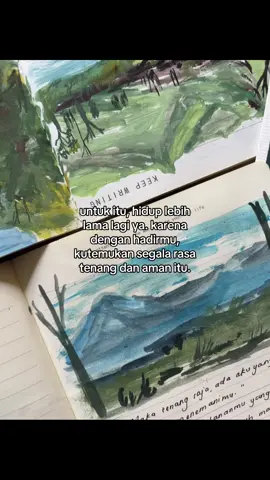 KEEP WRITING
untuk itu, hidup lebih
lama lagi ya. karena
dengan hadirmu,
kutemukan segala rasa
tenang dan aman itu.
Maka tenang saja, ada aku yang
menemanimu."